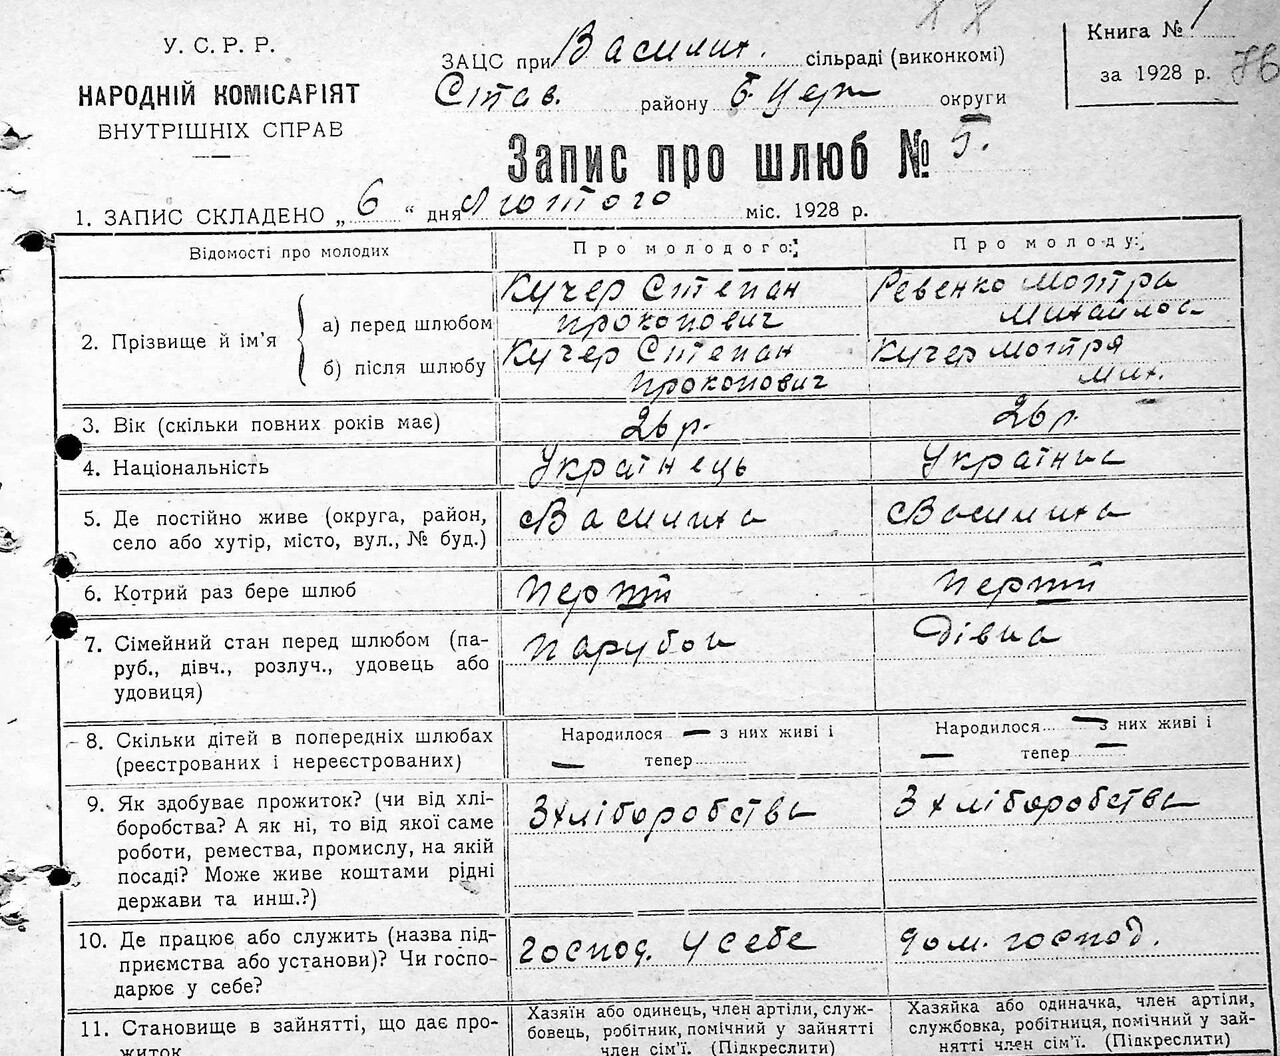 У. С. Р. Р.
НАРОДНІЙ КОМІСАРІЯТ
ВНУТРІШНІХ СПРАВ
ЗАЦС при Василих. сільраді (виконкомі)
Став. району Б. Церк округи
Книга № 1
за 1928 р.
76
Запис про шлюб № 5.
1. ЗАПИС СКЛАДЕНО „ 6 “ дня лютого міс. 1928 р.
Відомості про молодих
Про молодого:
Про молоду:
2. Прізвище й ім'я
а) перед шлюбом
Кучер Степан
Прокопович
Ревенко Мотря
Михайлов.
б) після шлюбу
Кучер Степан
Прокопович
Кучер Мотря
Мих.
3. Вік (скільки повних років має)
26 р.
26 р.
4. Національність
Українець
Українка
5. Де постійно живе (округа, район,
село або хутір, місто, вул., № буд.)
с Василиха
с Василиха
6. Котрий раз бере шлюб
Перший
Перший
7. Сімейний стан перед шлюбом (па-
руб., дівч., розлуч., удовець або
удовиця)
Парубок
Дівка
8. Скільки дітей в попередніх шлюбах
(реєстрованих і нереєстрованих)
Народилося — з них живі і
— тепер
Народилося — з них живі і
— тепер —
9. Як здобуває прожиток? (чи від хлі-
боробства? А як ні, то від якої саме
роботи, ремества, промислу, на якій
посаді? Може живе коштами рідні
держави та инш.?)
З хліборобства
З хліборобства
10. Де працює або служить (назва під-
приємства або установи)? Чи госпо-
дарює у себе?
Господ. у себе
дом. господ.
11. Становище в зайнятті, що дає про-
житок
Хазяїн або одинець, член артіли, служ-
бовець, робітник, помічний у зайнятті
член сім'ї. (Підкреслити)
Хазяйка або одиначка, член артіли,
службовка, робітниця, помічний у зай-
нятті член сім'ї. (Підкреслити)